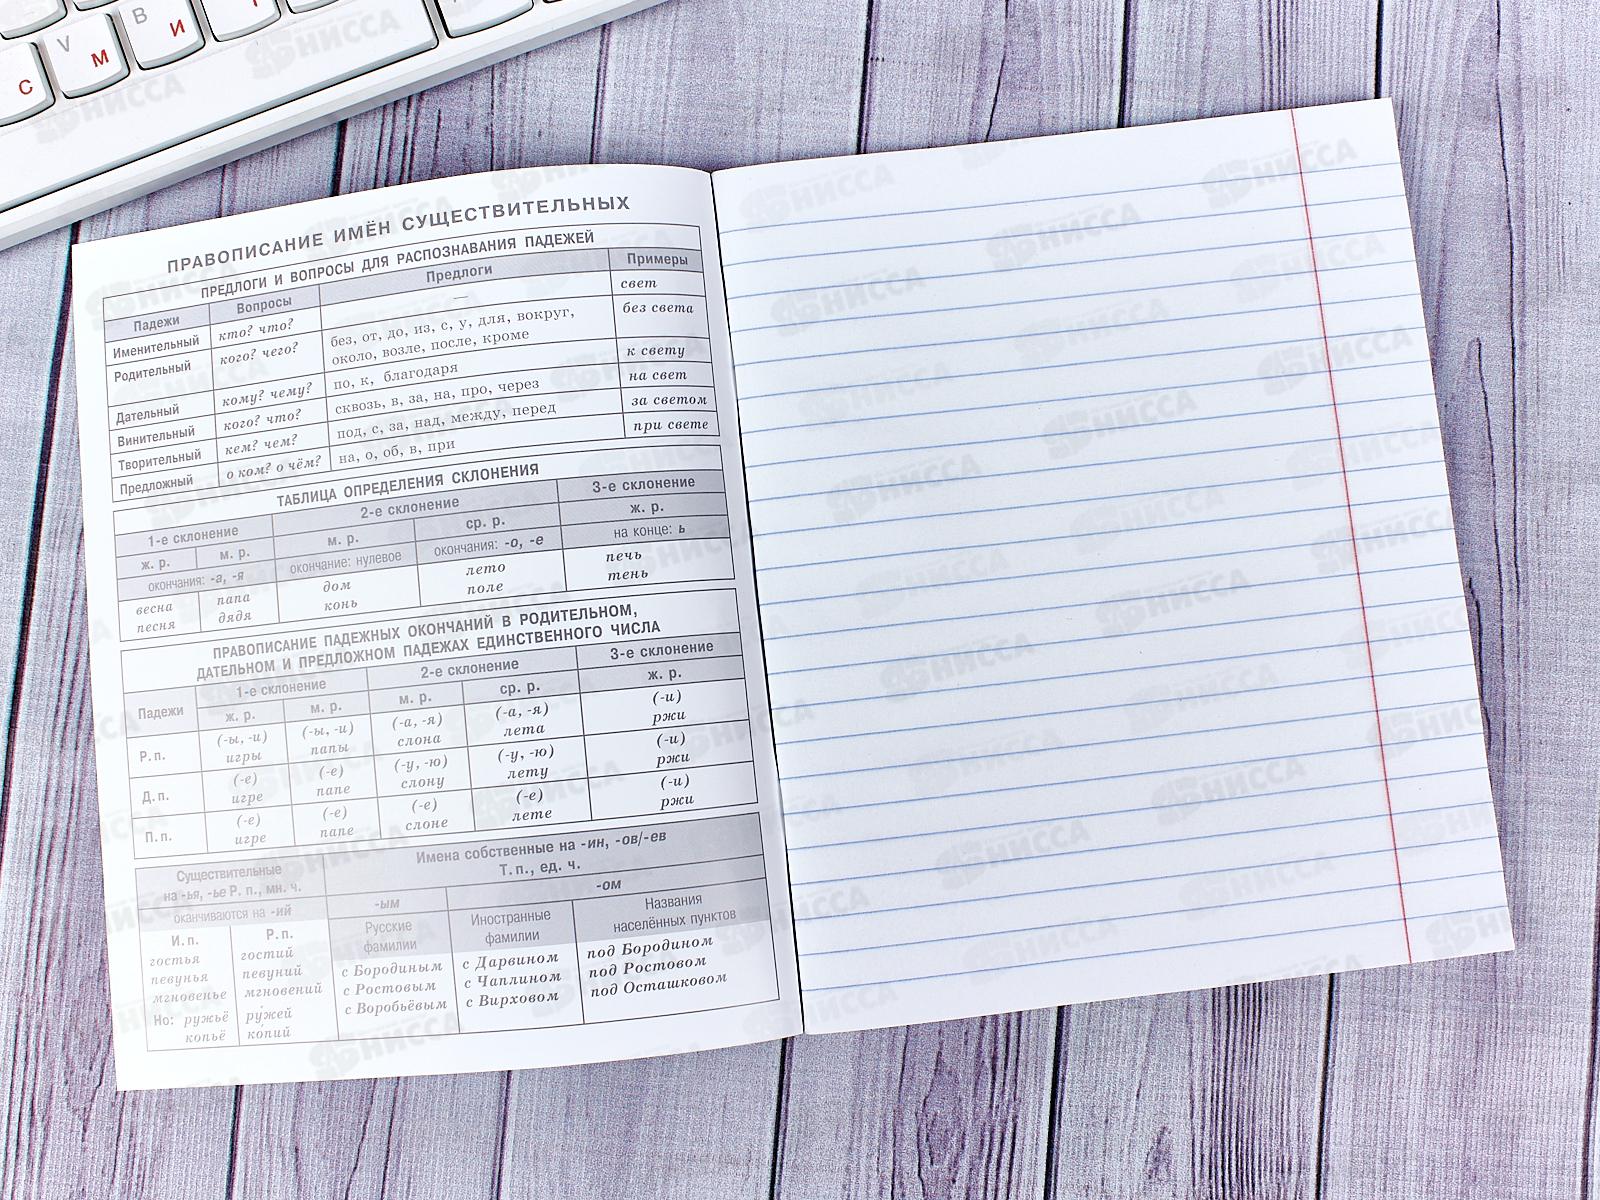 V
B
С
М
И
ПРАВОПИСАНИЕ ИМЁН СУЩЕСТВИТЕЛЬНЫХ
ПРЕДЛОГИ И ВОПРОСЫ ДЛЯ РАСПОЗНАВАНИЯ ПАДЕЖЕЙ
Падежи Вопросы Предлоги Примеры
Именительный кто? что? — свет
Родительный кого? чего? без, от, до, из, с, у, для, вокруг, без света
около, возле, после, кроме
Дательный кому? чему? по, к, благодаря к свету
Винительный кого? что? сквозь, в, за, на, про, через на свет
Творительный кем? чем? под, с, за, над, между, перед за светом
Предложный о ком? о чём? на, о, об, в, при при свете
ТАБЛИЦА ОПРЕДЕЛЕНИЯ СКЛОНЕНИЯ
1-е склонение 2-е склонение 3-е склонение
ж. р. м. р. м. р. ср. р. ж. р.
окончания: -а, -я окончание: нулевое окончания: -о, -е на конце: ь
весна папа дом лето печь
песня дядя конь поле тень
ПРАВОПИСАНИЕ ПАДЕЖНЫХ ОКОНЧАНИЙ В РОДИТЕЛЬНОМ,
ДАТЕЛЬНОМ И ПРЕДЛОЖНОМ ПАДЕЖАХ ЕДИНСТВЕННОГО ЧИСЛА
Падежи 1-е склонение 2-е склонение 3-е склонение
ж. р. м. р. м. р. ср. р. ж. р.
Р. п. (-ы, -и) (-ы, -и) (-а, -я) (-а, -я) (-и)
игры папы слона лета ржи
Д. п. (-е) (-е) (-у, -ю) (-у, -ю) (-и)
игре папе слону лету ржи
П. п. (-е) (-е) (-е) (-е) (-и)
игре папе слоне лете ржи
Существительные Имена собственные на -ин, -ов/-ев
на -ья, -ье Р. п., мн. ч. Т. п., ед. ч.
оканчиваются на -ий -ым -ом
И. п. Р. п. Русские фамилии Иностранные фамилии Названия населённых пунктов
гостья гостий с Бородиным с Дарвином под Бородином
певунья певуний с Ростовым с Чаплином под Ростовом
мгновенье мгновений с Воробьёвым с Вирховом под Осташковом
Но: ружьё ру́жей
копьё ко́пий
НИССА